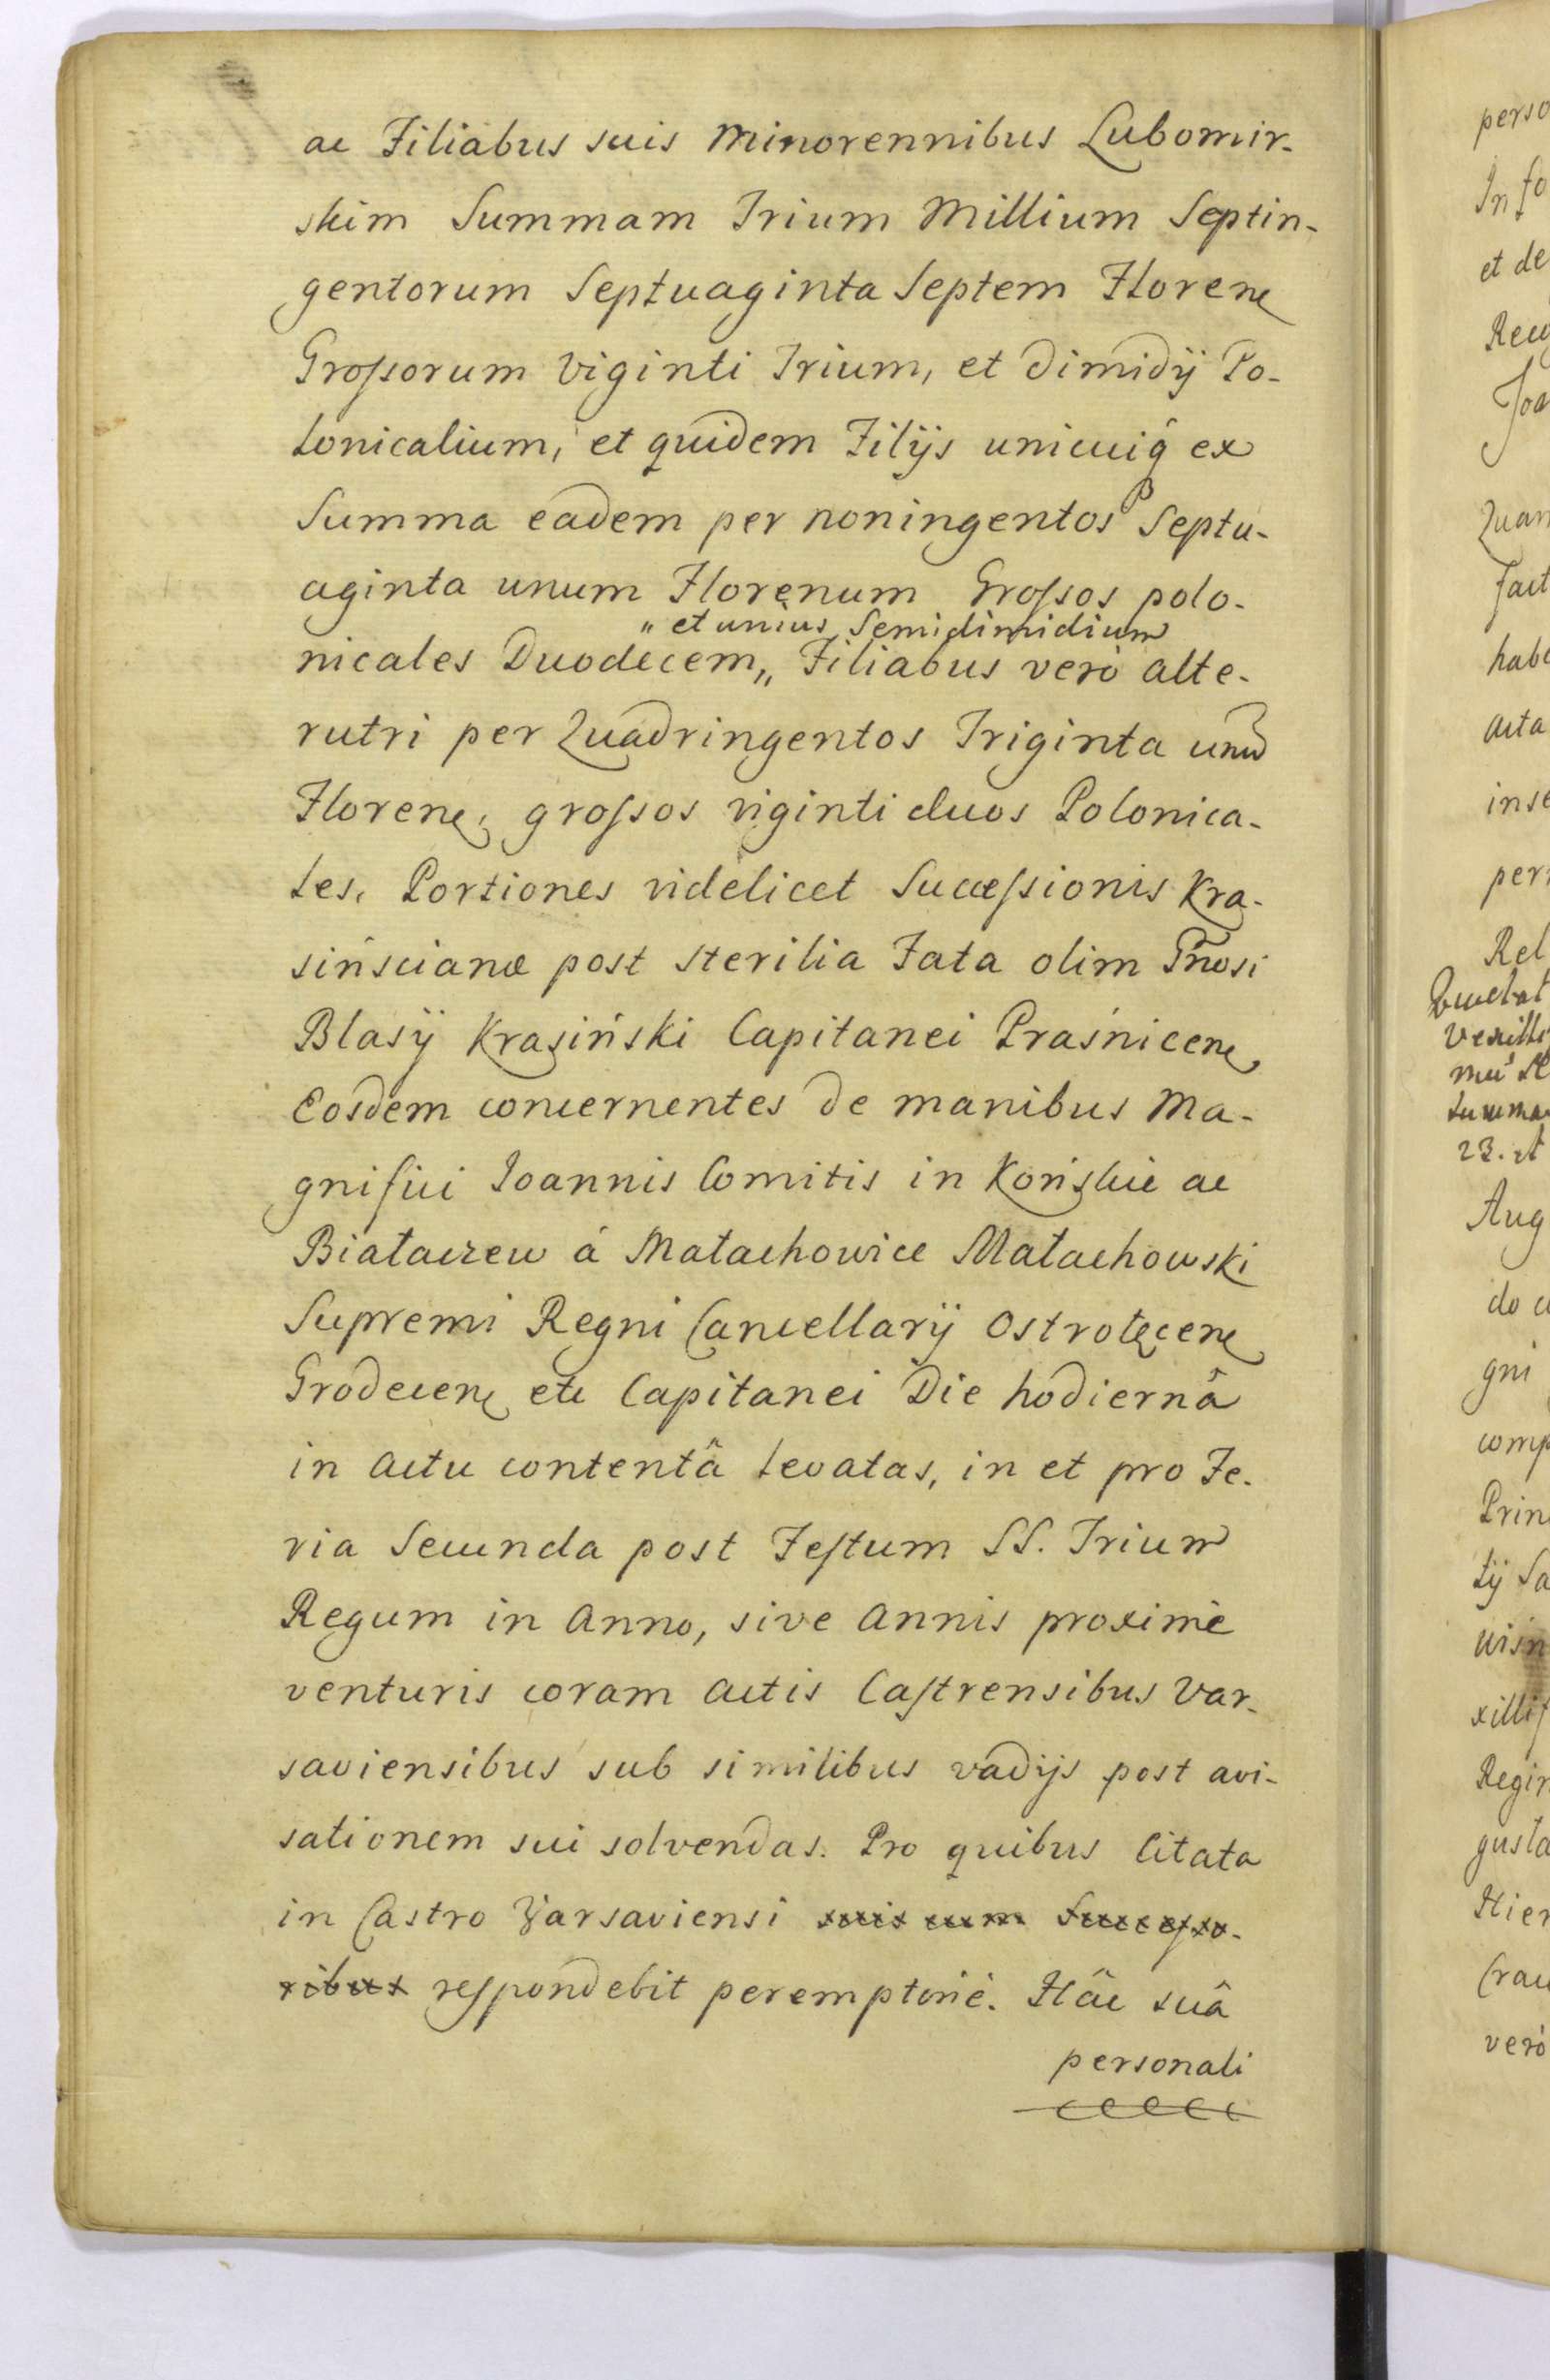 ac Filiabus suis Minorennibus Lubomir-
skim Summam Trium Millium Septin-
gentorum Septuaginta Septem Floren
Groſsorum Viginti Trium, et Dimidÿ Po-
lonicalium, et quidem Filÿs unicuiq̂ ex
Summa eadem per noningentos Septu-
aginta unum Florenum Groſsos polo-
„ et unius Semidimidium
nicales Duodecem„ Filiabus verò alte-
rutri per Quadringentos Triginta unū
Floren, groſsos viginti duos Polonica-
les, Portiones videlicet Succeſsionis Kra-
sińscianæ post sterilia Fata olim Gnosi
Blasÿ Krasiński Capitanei Praśnicen
Eosdem concernentes de manibus Ma-
gnifici Joannis Comitis in Końskie ac
Białaczew á Małachowice Małachowski
Supremi Regni Cancellarÿ Ostrołęcen
Grodecen etc Capitanei Die hodiernâ
in Actu contentâ levatas, in et pro Fe-
ria Secunda post Feſtum SS. Trium
Regum in Anno, sive Annis proximè
venturis coram Actis Caſtrensibus Var-
saviensibus sub similibus vadÿs post avi-
sationem sui solvendas. Pro quibus Citata
in Castro Varsaviensi suis cum Succeſso-
ribus reſpondebit peremptoriè. Hâc suâ
personali
perso
In fo
et de
Joa
Quam
habe
acta
inse
per
Rel
23. et
Aug
do
gni
comp
Prin
Regin
gusta
Hier
verò